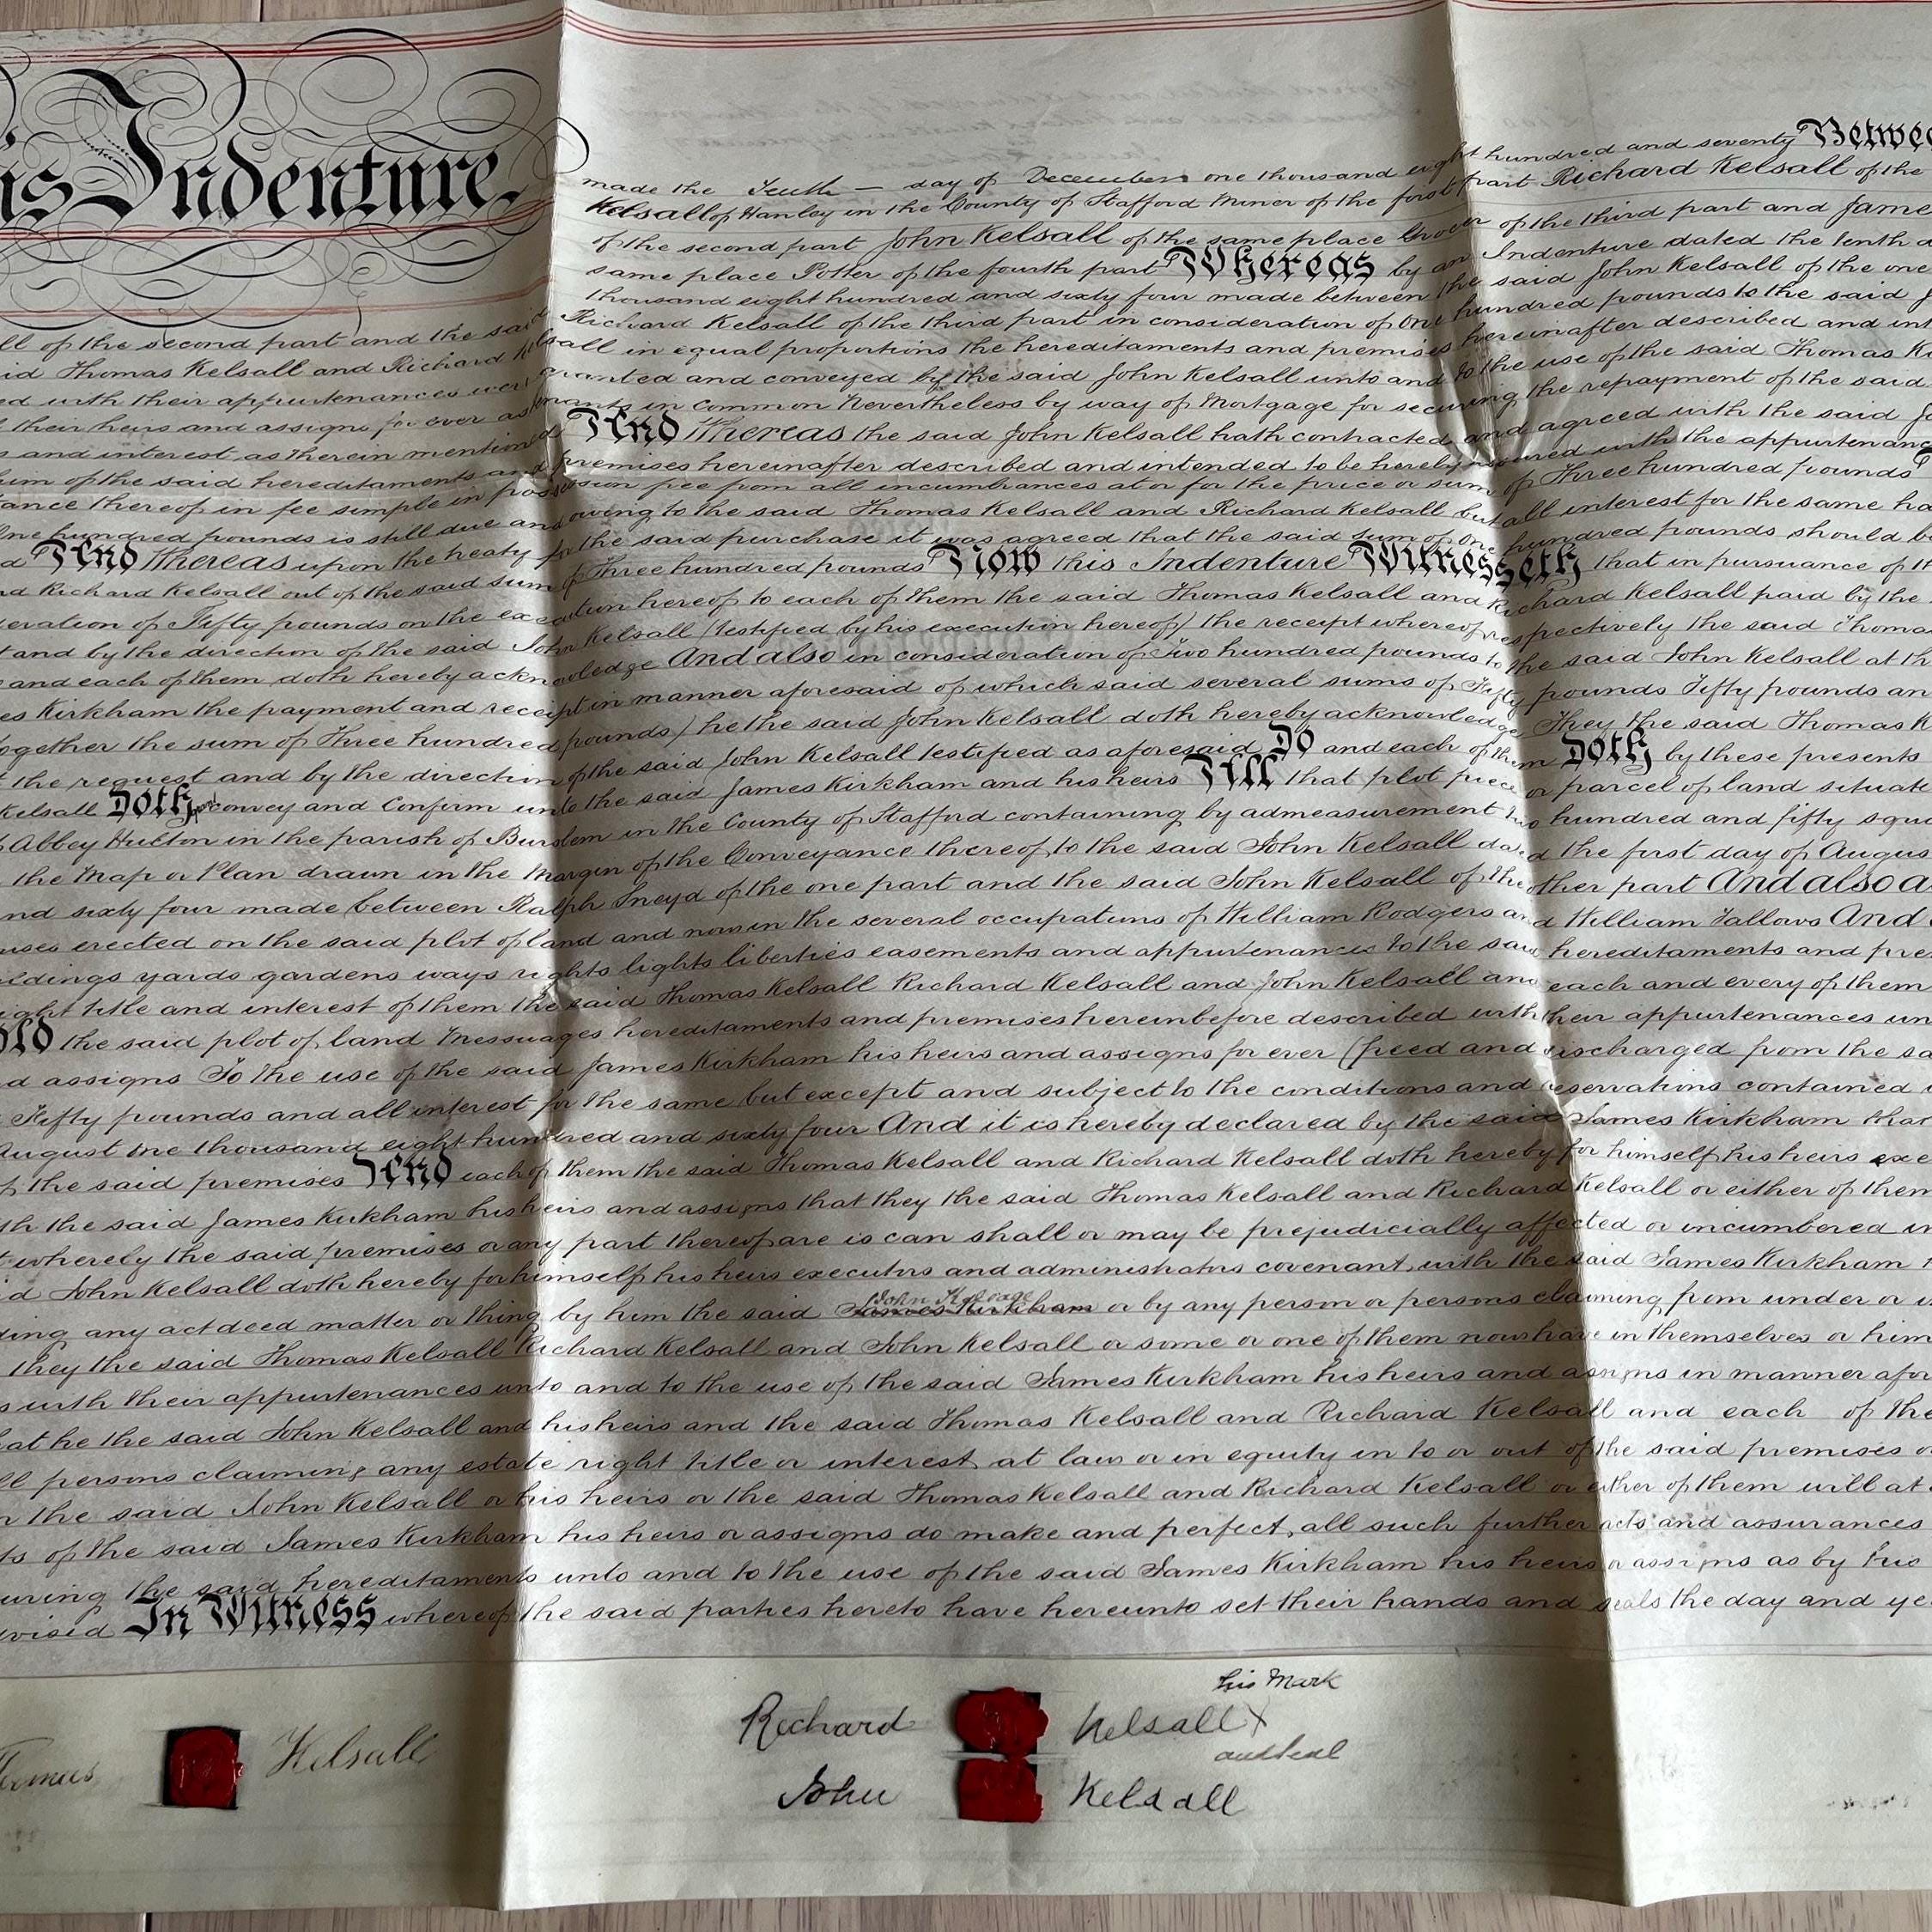 is Indenture
made the Tenth — day of December one thousand eight hundred and seventy Betwe
Kelsall of Hanley in the County of Stafford Miner of the first part Richard Kelsall of the
of the second part John Kelsall of the same place Grocer of the third part and Jame
same place Potter of the fourth part Whereas by an Indenture dated the tenth d
thousand eight hundred and sixty four made between the said John Kelsall of the one
ll of the second part and the said Richard Kelsall of the third part in consideration of One hundred pounds to the said J
id Thomas Kelsall and Richard Kelsall in equal proportions the hereditaments and premises hereinafter described and int
ed with their appurtenances were granted and conveyed by the said John Kelsall unto and to the use of the said Thomas K
their heirs and assigns for ever as tenants in common Nevertheless by way of Mortgage for securing the repayment of the said
s and interest as therein mentioned And Whereas the said John Kelsall hath contracted and agreed with the said J
him of the said hereditaments and premises hereinafter described and intended to be hereby assured with the appurtenanc
tance thereof in fee simple in possession free from all incumbrances at or for the price or sum of Three hundred pounds
One hundred pounds is still due and owing to the said Thomas Kelsall and Richard Kelsall but all interest for the same ha
d And Whereas upon the treaty for the said purchase it was agreed that the said sum of One hundred pounds should be
nd Richard Kelsall out of the said sum of Three hundred pounds Now this Indenture Witnesseth that in pursuance of th
eration of Fifty pounds on the execution hereof to each of them the said Thomas Kelsall and Richard Kelsall paid by the
t and by the direction of the said John Kelsall (testified by his execution hereof) the receipt whereof respectively the said Thoma
and each of them doth hereby acknowledge And also in consideration of Two hundred pounds to the said John Kelsall at th
es Kirkham the payment and receipt in manner aforesaid of which said several sums of Fifty pounds Fifty pounds an
ogether the sum of Three hundred pounds) he the said John Kelsall doth hereby acknowledge They the said Thomas K
t the request and by the direction of the said John Kelsall testified as aforesaid Do and each of them Doth by these presents
Kelsall Doth convey and Confirm unto the said James Kirkham and his heirs All that plot piece or parcel of land situate
Abbey Hulton in the parish of Burslem in the County of Stafford containing by admeasurement two hundred and fifty squa
the Map or Plan drawn in the Margin of the Conveyance thereof to the said John Kelsall dated the first day of Augus
nd sixty four made between Ralph Sneyd of the one part and the said John Kelsall of the other part And also a
ises erected on the said plot of land and now in the several occupations of William Rodgers and William Fallows And
ildings yards gardens ways rights lights liberties easements and appurtenances to the said hereditaments and pre
ight title and interest of them the said Thomas Kelsall Richard Kelsall and John Kelsall and each and every of them
old the said plot of land Messuages hereditaments and premises hereinbefore described with their appurtenances un
d assigns To the use of the said James Kirkham his heirs and assigns for ever (freed and discharged from the sa
Fifty pounds and all interest for the same but except and subject to the conditions and reservations contained
August one thousand eight hundred and sixty four And it is hereby declared by the said James Kirkham that
of the said premises And each of them the said Thomas Kelsall and Richard Kelsall doth hereby for himself his heirs exe
th the said James Kirkham his heirs and assigns that they the said Thomas Kelsall and Richard Kelsall or either of them
t whereby the said premises or any part thereof are is can shall or may be prejudicially affected or incumbered in
d John Kelsall doth hereby for himself his heirs executors and administrators covenant with the said James Kirkham
ding any act deed matter or thing by him the said James Kirkham or by any person or persons claiming from under or i
they the said Thomas Kelsall Richard Kelsall and John Kelsall or some or one of them now have in themselves or him
s with their appurtenances unto and to the use of the said James Kirkham his heirs and assigns in manner afor
hat he the said John Kelsall and his heirs and the said Thomas Kelsall and Richard Kelsall and each of the
ll persons claiming any estate right title or interest at law or in equity in to or out of the said premises o
the said John Kelsall or his heirs or the said Thomas Kelsall and Richard Kelsall or either of them will at
ts of the said James Kirkham his heirs or assigns do make and perfect all such further acts and assurances
uring the said hereditaments unto and to the use of the said James Kirkham his heirs or assigns as by his
dvised In Witness whereof the said parties hereto have hereunto set their hands and seals the day and ye
his Mark
Thomas Kelsall
Richard Kelsall X
and seal
John Kelsall